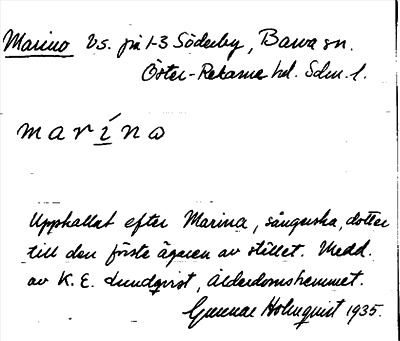 Marino bs. på 1-3 Söderby, Barva sn.
Öster-Rekarne hd. Sdm. l.
marína
Uppkallat efter Marina, sångerska, dotter
till den förste ägaren av stället. Medd.
av K. E. Lundqvist, Ålderdomshemmet.
Gunnar Holmquist 1935.